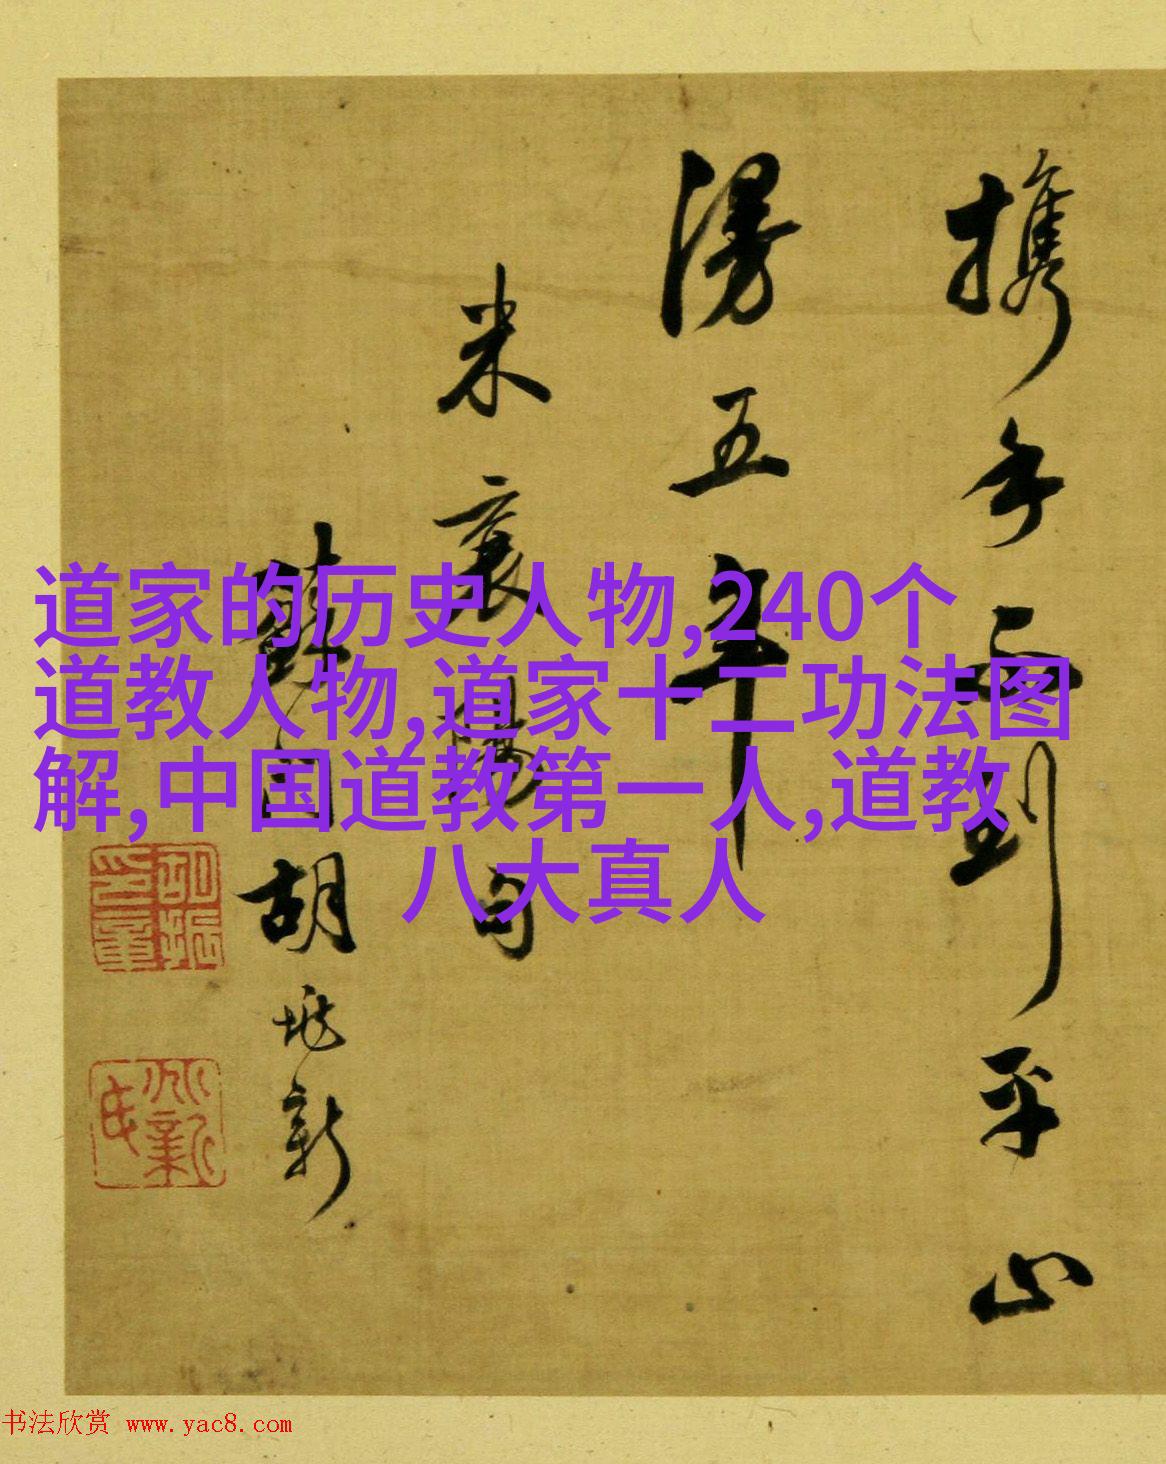 携手不到平山
漫五年
米襄阳句
古
胡兆新
道家的历史人物,240个
道教人物,道家十二功法图
解,中国道教第一人,道教
八大真人
书法欣赏 www.yac8.com